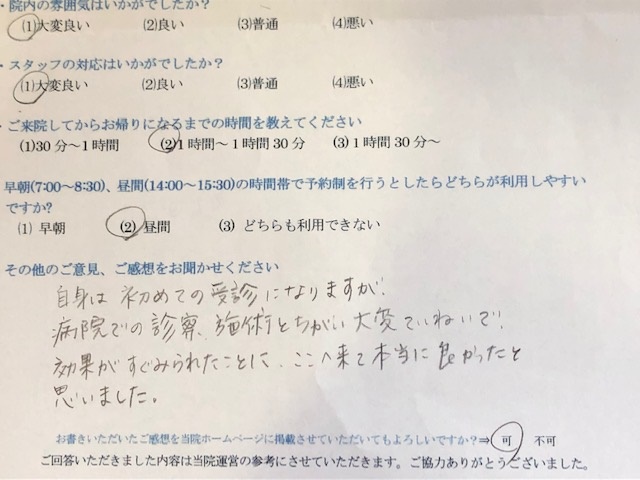 ・院内の雰囲気はいかがでしたか?
(1)大変良い (2)良い (3)普通 (4)悪い
・スタッフの対応はいかがでしたか?
(1)大変良い (2)良い (3)普通 (4)悪い
・ご来院してからお帰りになるまでの時間を教えてください
(1)30分～1時間 (2)1時間～1時間30分 (3)1時間30分～
早朝(7:00～8:30)、昼間(14:00～15:30)の時間帯で予約制を行うとしたらどちらが利用しやすい
ですか?
(1) 早朝 (2) 昼間 (3) どちらも利用できない
その他のご意見、ご感想をお聞かせください
自身は初めての受診になりますが、
病院での診察、施術とちがい大変ていねいで、
効果がすぐみられたことに、ここへ来て本当に良かったと
思いました。
お書きいただいたご感想を当院ホームページに掲載させていただいてもよろしいですか?⇒ 可 不可
ご回答いただきました内容は当院運営の参考にさせていただきます。ご協力ありがとうございました。